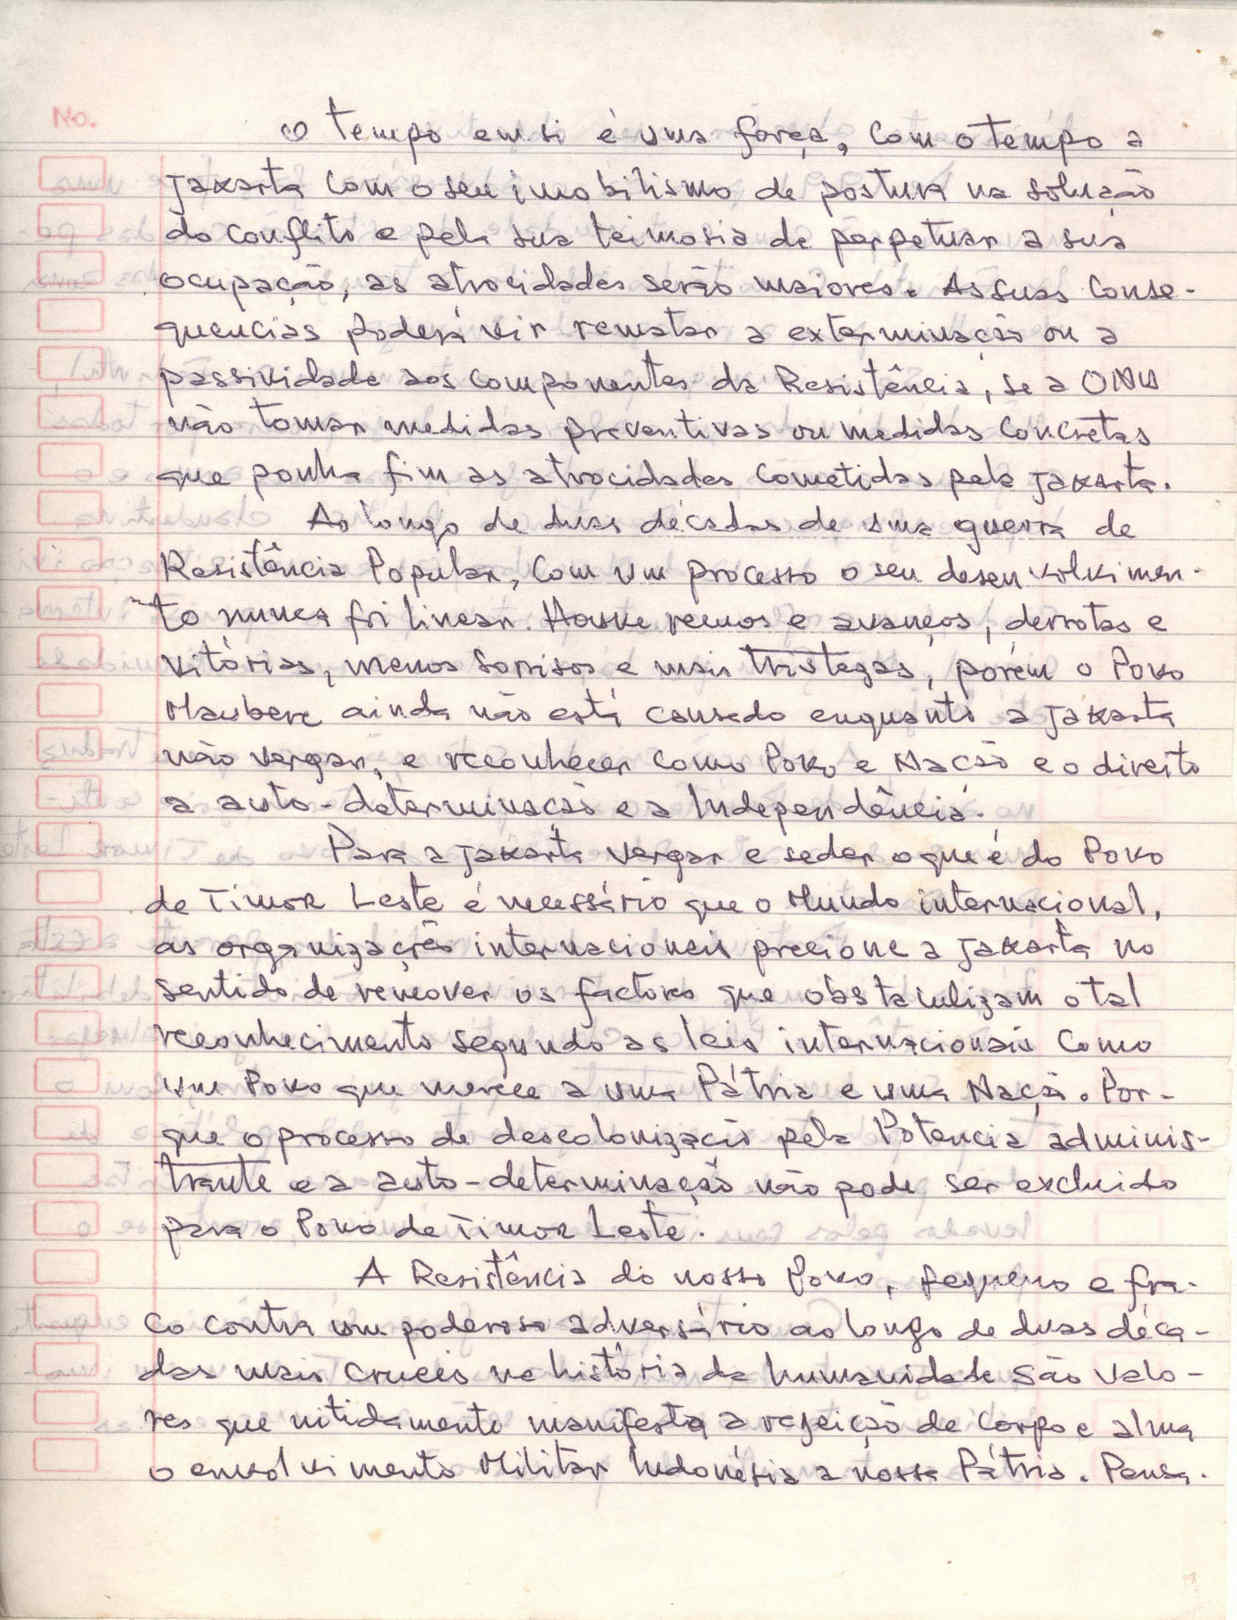 No.
O tempo em si é uma força, com o tempo a
Jakarta com o seu imobilismo de postura na solução
do conflito e pela sua teimosia de perpetuar a sua
ocupação, as atrocidades serão maiores. As suas conse-
quencias poderá vir rematar a exterminação ou a
passividade aos componentes da Resistência, se a ONU
não tomar medidas preventivas ou medidas concretas
que ponha fim as atrocidades cometidas pela Jakarta.
Ao longo de duas décadas de uma guerra de
Resistência Popular, com um processo o seu desenvolvimen-
to nunca foi linear. Houve recuos e avanços, derrotas e
vitórias, menos sorrisos e mais tristezas, porém o Povo
Maubere ainda não está cansado enquanto a Jakarta
não vergar, e reconhecer como Povo e Nação e o direito
a auto-determinação e a Independência.
Para a Jakarta vergar e seder o que é do Povo
de Timor Leste é necessário que o Mundo internacional,
as organizações internacionais precione a Jakarta no
sentido de remover os factores que obstaculizam o tal
reconhecimento segundo as leis internacionais como
um Povo que merece a uma Pátria e uma Nação. Por-
que o processo de descolonização pela Potencia adminis-
trante e a auto-determinação não pode ser excluido
para o Povo de Timor Leste.
A Resistência do nosso Povo, pequeno e fra-
co contra um poderoso adversário ao longo de duas déca-
das mais crueis na história da humanidade são valo-
res que nitidamente manifesta a rejeição de corpo e alma
o envolvimento Militar Indonésia a nossa Pátria. Pensa.